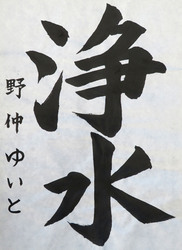 浄水
野仲ゆいと